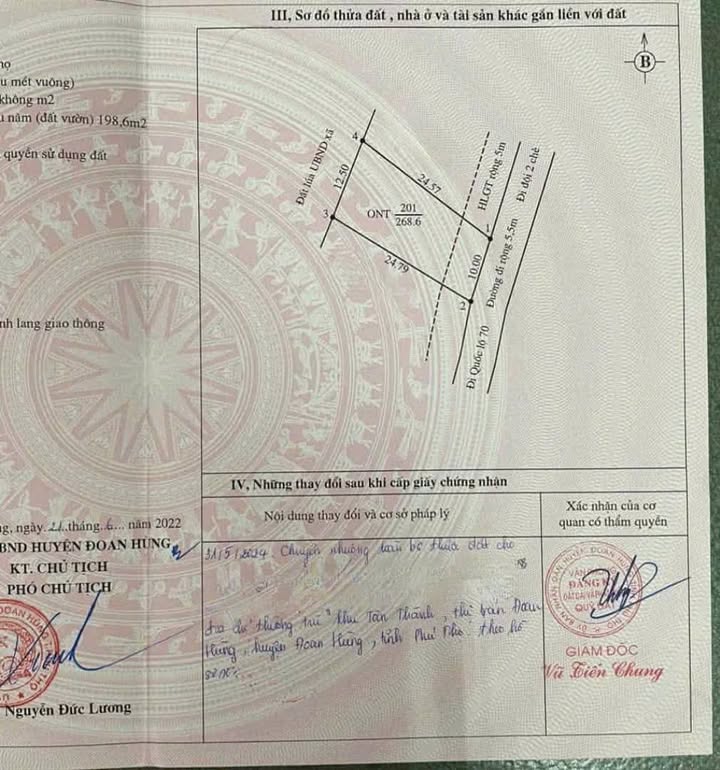 III, Sơ đồ thửa đất , nhà ở và tài sản khác gắn liền với đất
họ
u mét vuông)
không m2
năm (đất vườn) 198,6m2
quyền sử dụng đất
nh lang giao thông
B
Đất lúa UBND xã
4
12.50
3
24.57
ONT 201
268.6
24.79
1
10.00
2
HLGT rộng 5m
Đường đi rộng 5,5m
Đi đội 2 chè
Đi Quốc lộ 70
IV, Những thay đổi sau khi cấp giấy chứng nhận
Nội dung thay đổi và cơ sở pháp lý
Xác nhận của cơ
quan có thẩm quyền
31/5/2024. Chuyển nhượng toàn bộ thửa đất cho
địa chỉ thường trú khu Tân Thành, thị trấn Đoan
Hùng, huyện Đoan Hùng, tỉnh Phú Thọ theo hồ
GIÁM ĐỐC
Vũ Tiến Chung
ng, ngày 21 tháng 6 năm 2022
BND HUYỆN ĐOAN HÙNG
KT. CHỦ TỊCH
PHÓ CHỦ TỊCH
Nguyễn Đức Lương